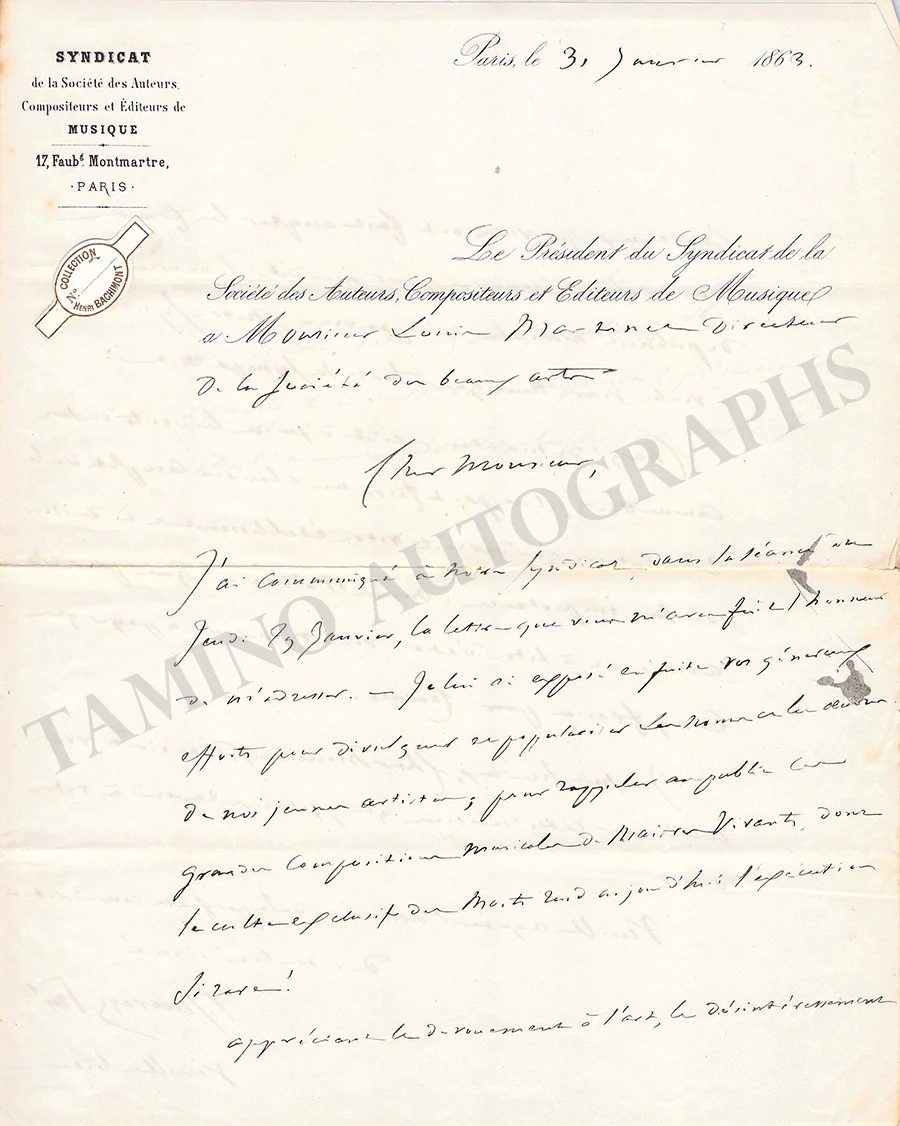 SYNDICAT
de la Société des Auteurs,
Compositeurs et Éditeurs de
MUSIQUE
17, Faubg. Montmartre,
· PARIS ·
COLLECTION
No
HENRI BACHIMONT
Paris, le 31 Janvier 1863.
Le Président du Syndicat de la
Société des Auteurs, Compositeurs et Editeurs de Musique
a Monsieur Louis Martinet Directeur
De la Société des beaux arts
Cher Monsieur,
J'ai communiqué à notre Syndicat, dans la séance du
Jeudi 29 Janvier, la lettre que vous m'avez fait l'honneur
de m'adresser. — Je lui ai exposé ensuite vos généreux
efforts pour divulguer et populariser les noms et les œuvres
de nos jeunes artistes; pour rappeler au public ces
grandes Compositions Musicales de Maitres Vivants, dont
le culte exclusif des Morts rend aujourd'hui l'exécution
si rare!
appréciant le dévouement à l'art, le désintéressement
TAMINO AUTOGRAPHS